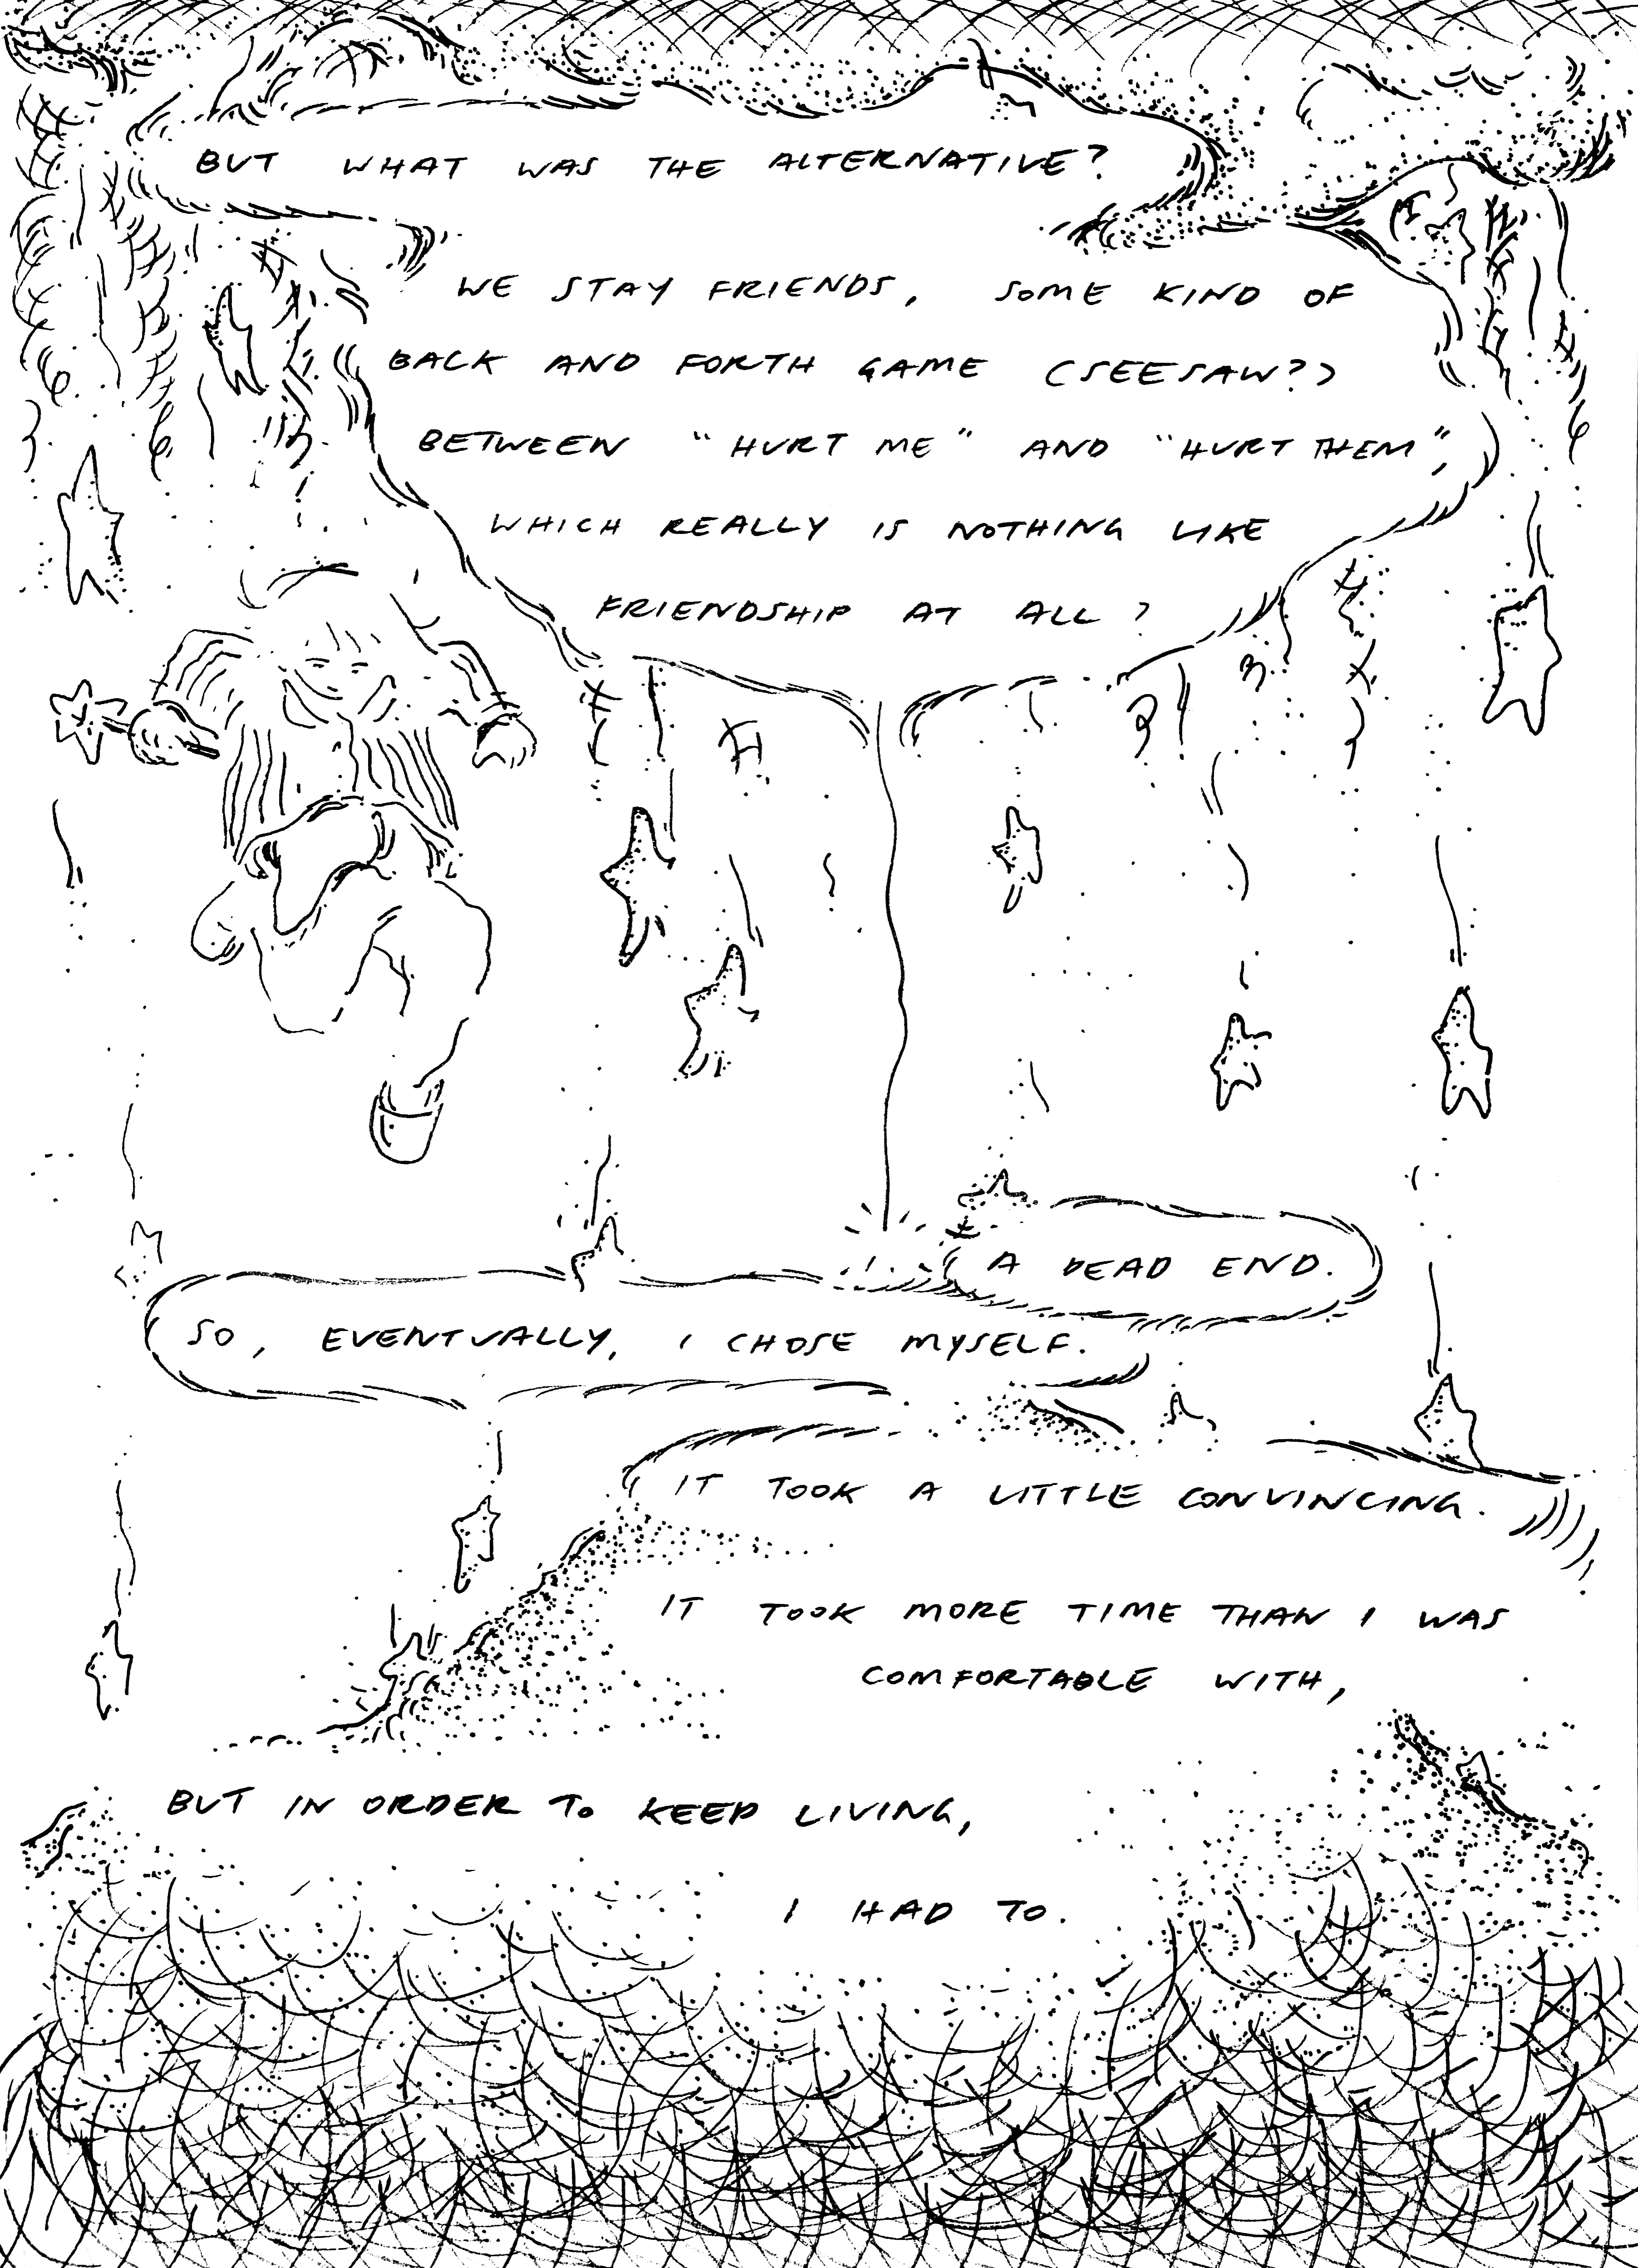 BUT WHAT WAS THE ALTERNATIVE?
WE STAY FRIENDS, SOME KIND OF
BACK AND FORTH GAME (SEESAW?)
BETWEEN "HURT ME" AND "HURT THEM",
WHICH REALLY IS NOTHING LIKE
FRIENDSHIP AT ALL?
A DEAD END.
SO, EVENTUALLY, I CHOSE MYSELF.
IT TOOK A LITTLE CONVINCING.
IT TOOK MORE TIME THAN I WAS
COMFORTABLE WITH,
BUT IN ORDER TO KEEP LIVING,
I HAD TO.